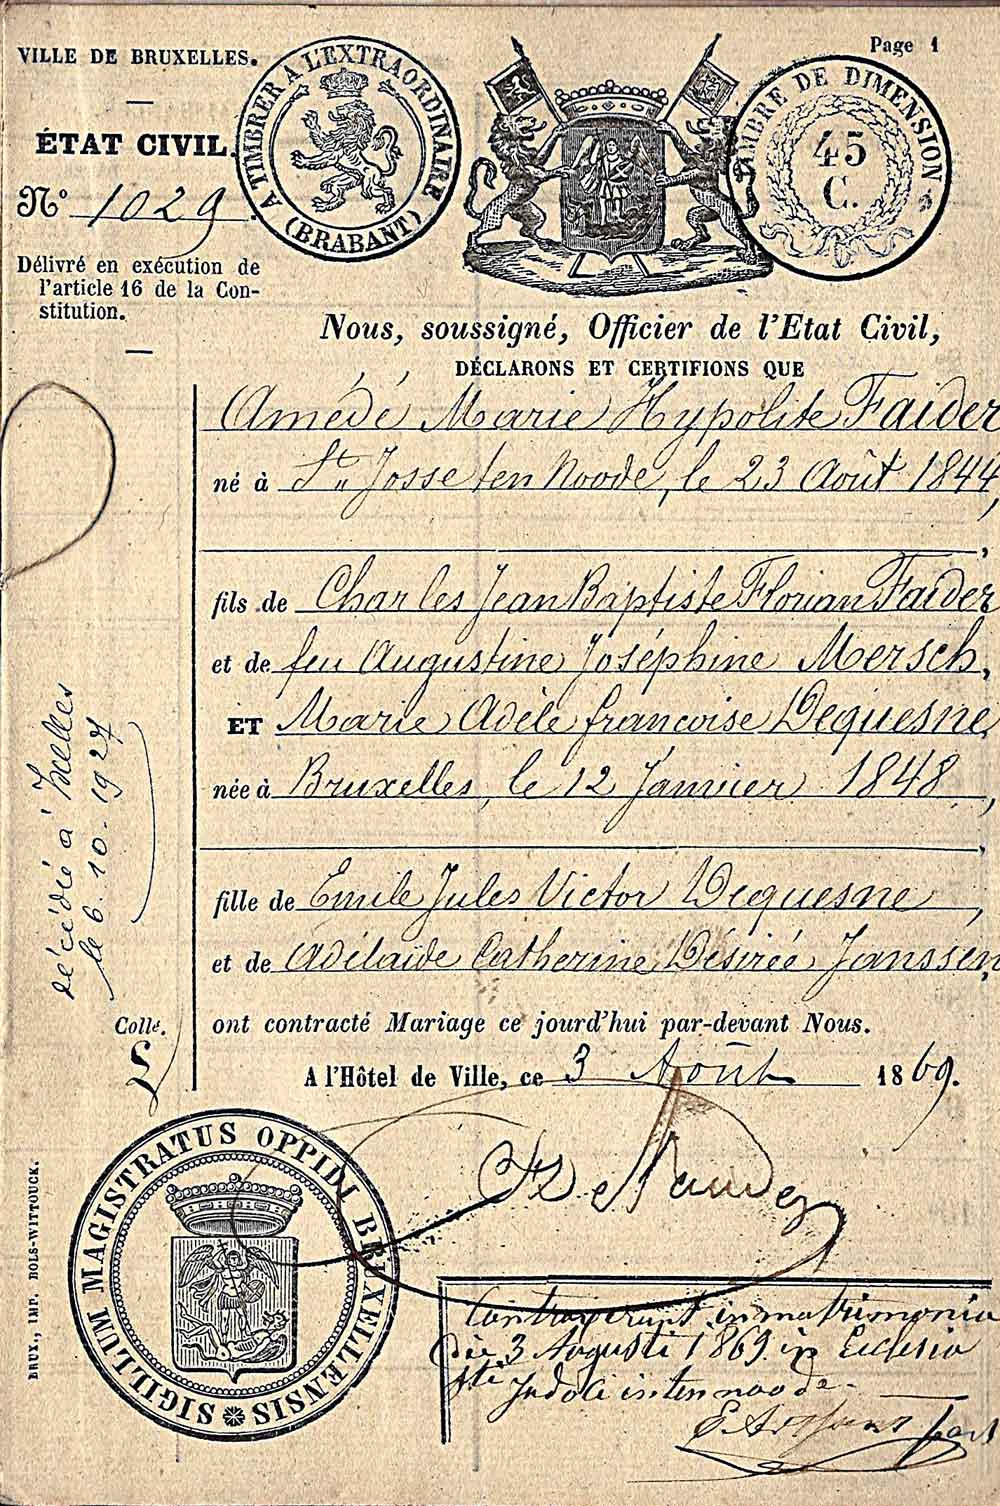 Page 1
VILLE DE BRUXELLES.
ÉTAT CIVIL.
N° 1029.
Délivré en exécution de
l'article 16 de la Con-
stitution.
A TIMBRER A L'EXTRAORDINAIRE
(BRABANT)
TIMBRE DE DIMENSION
45
C.
Nous, soussigné, Officier de l'Etat Civil,
DÉCLARONS ET CERTIFIONS QUE
Amédé Marie Hypolite Faider
né à St Josse ten Noode, le 23 Août 1844,
fils de Charles Jean Baptiste Florian Faider
et de feu Augustine Joséphine Mersch,
ET Marie Adèle françoise Dequesne,
née à Bruxelles, le 12 Janvier 1848,
fille de Emile Jules Victor Dequesne,
et de Adélaïde Catherine Désirée Janssen
ont contracté Mariage ce jourd'hui par-devant Nous.
A l'Hôtel de Ville, ce 3 Août 1869.
décédé à Ixelles
le 6.10.1927
Colle.
SIGILLUM MAGISTRATUS OPPIDI BRUXELLENSIS
BRUX., IMP. BOLS-WITTOUCK.
Contraxerunt in matrimonio
die 3 Augusti 1869 in Ecclesia
sti Judoci in ten noode